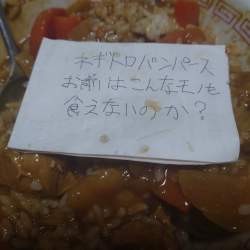 ネギトロバンパース
お前はこんなモノも
食えないのか?